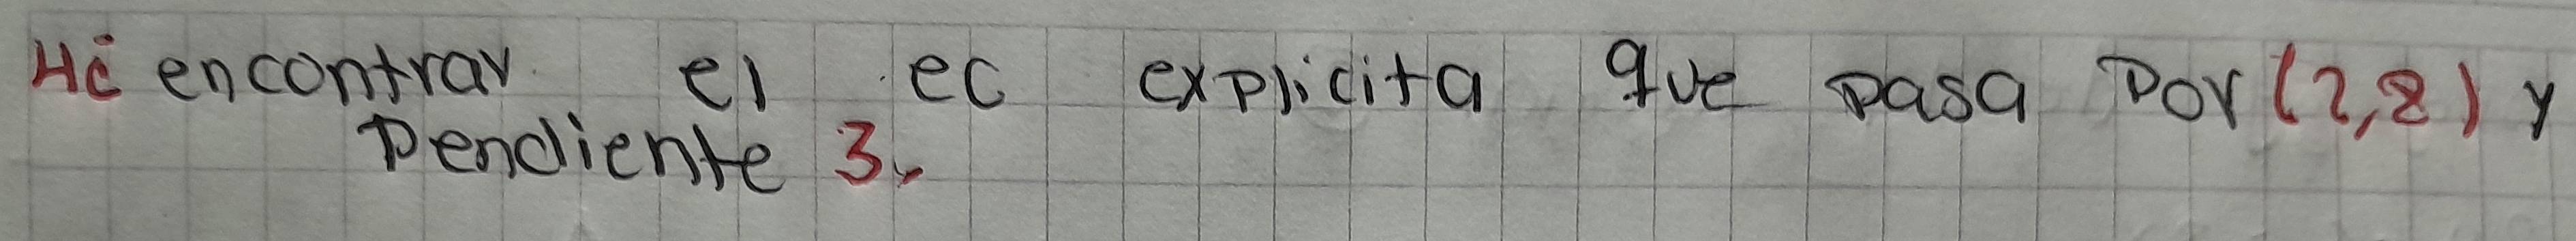 Hé encontrar el ec explicita que pasa por (2,8) y
pendiente 3.